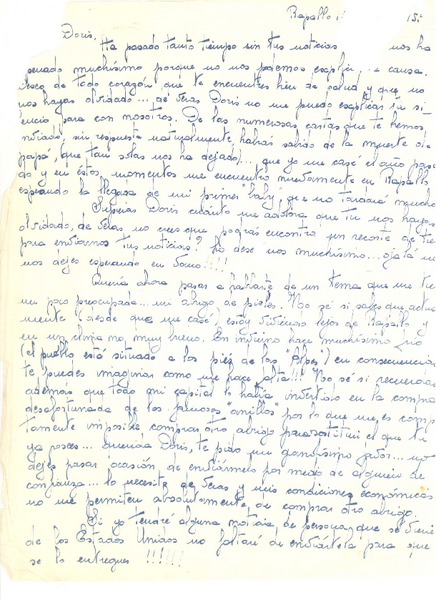 Rapallo 15.-
Doris,
Ha pasado tanto tiempo sin tus noticias nos ha
penado muchísimo porque no nos podemos explicar la causa.
Deseo de todo corazón que te encuentres bien de salud y que no
nos hayas olvidado... de veras Doris no me puedo explicar tu si-
lencio para con nosotros. De las numerosas cartas que te hemos
enviado, sin respuesta naturalmente, habrás sabido de la muerte de
papá (que tan solas nos ha dejado)... que yo me casé el año pasa-
do y en estos momentos me encuentro nuevamente en Rapallo
esperando la llegada de mi primer "baby", que no tardará mucho
Supieras Doris cuánto me que tu nos hayas
olvidado, de veras no crees que podrás encontrar un recorte de tiempo
para enviarnos tus noticias? Lo deseo muchísimo... ojalá no
nos dejes esperando en vano!!!!
Quería ahora pasar a hablarte de un tema que me tiene
un poco preocupada... mi abrigo de pieles. No sé si sabes que actual-
mente (desde que me casé) estoy viviendo lejos de Rapallo y
en un clima no muy bueno. En invierno hace muchísimo frío
(el pueblo está situado a los pies de los "Alpes") en consecuencia
te puedes imaginar como me hace falta!!! No sé si recuerdas
además que todo mi capital lo había invertido en la compra
desafortunada de los famosos "anillos" por lo que me es comple-
tamente imposible comprar otro abrigo para sustituir el que tu
ya posees... querida Doris, te pido un grandísimo favor... no
dejes pasar ocasión de enviármelo por medio de alguien de
confianza... lo necesito de veras y mis condiciones económicas
no me permiten absolutamente de comprar otro abrigo.
Si yo tendré alguna noticia de persona que se viene
de los Estados Unidos no faltaré de enviártela para que
se lo entregues!!!!!